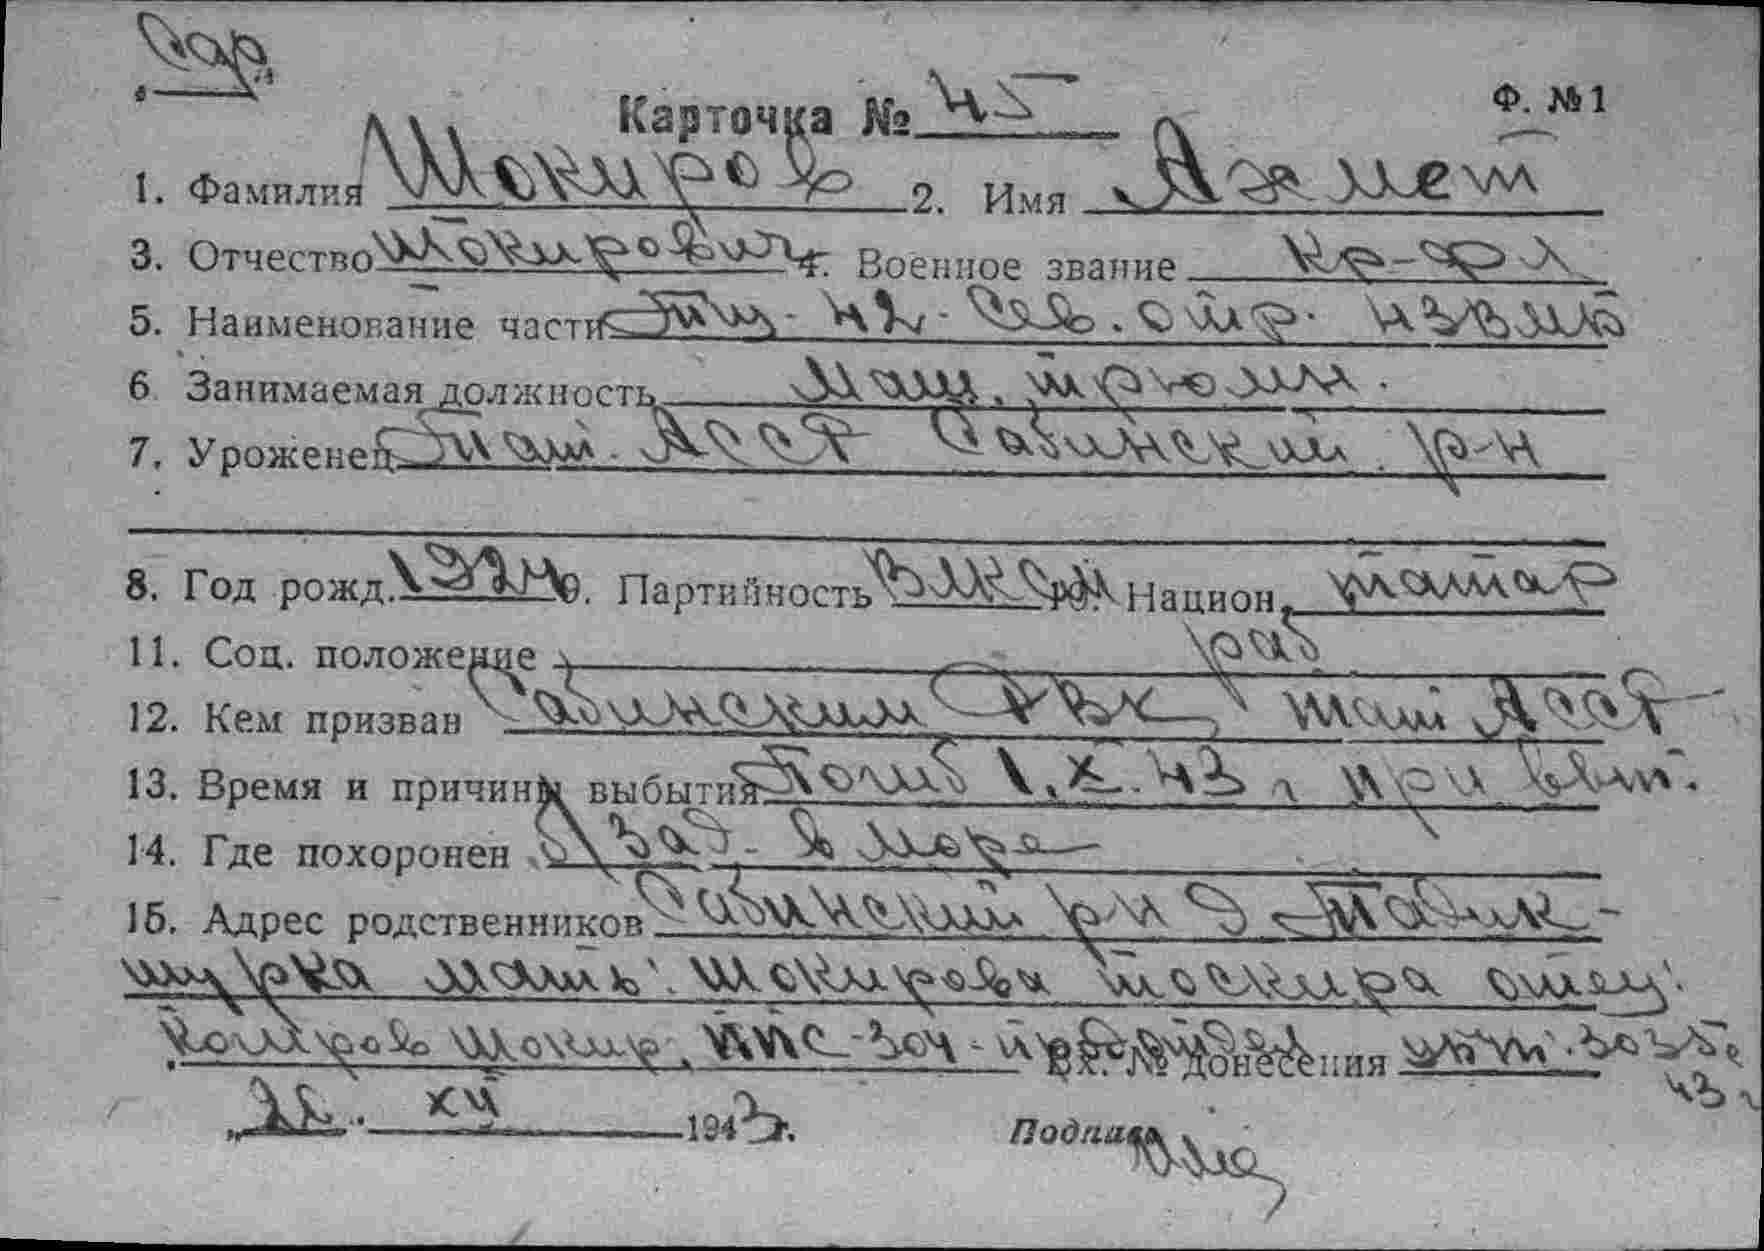 Карточка № 45 Ф. №1
1. Фамилия Шокиров 2. Имя Азмет
3. Отчество Шокирович 4. Военное звание Кр-фл
5. Наименование части
6 Занимаемая должность Маш. трюмн.
7. Уроженец Там. АССР Сабинский р-н
8. Год рожд. 9. Партийность ВЛКСМ Национ. татар
11. Соц. положение раб
12. Кем призван Сабинским РВК, Там АССР
13. Время и причины выбытия Погиб 1.X.43 г при
14. Где похоронен в море
15. Адрес родственников Сабинский р-н д
мать: Шокирова отец:
Шокиров Шокир, ППС Вх. № донесения
XII 1943г. Подпись